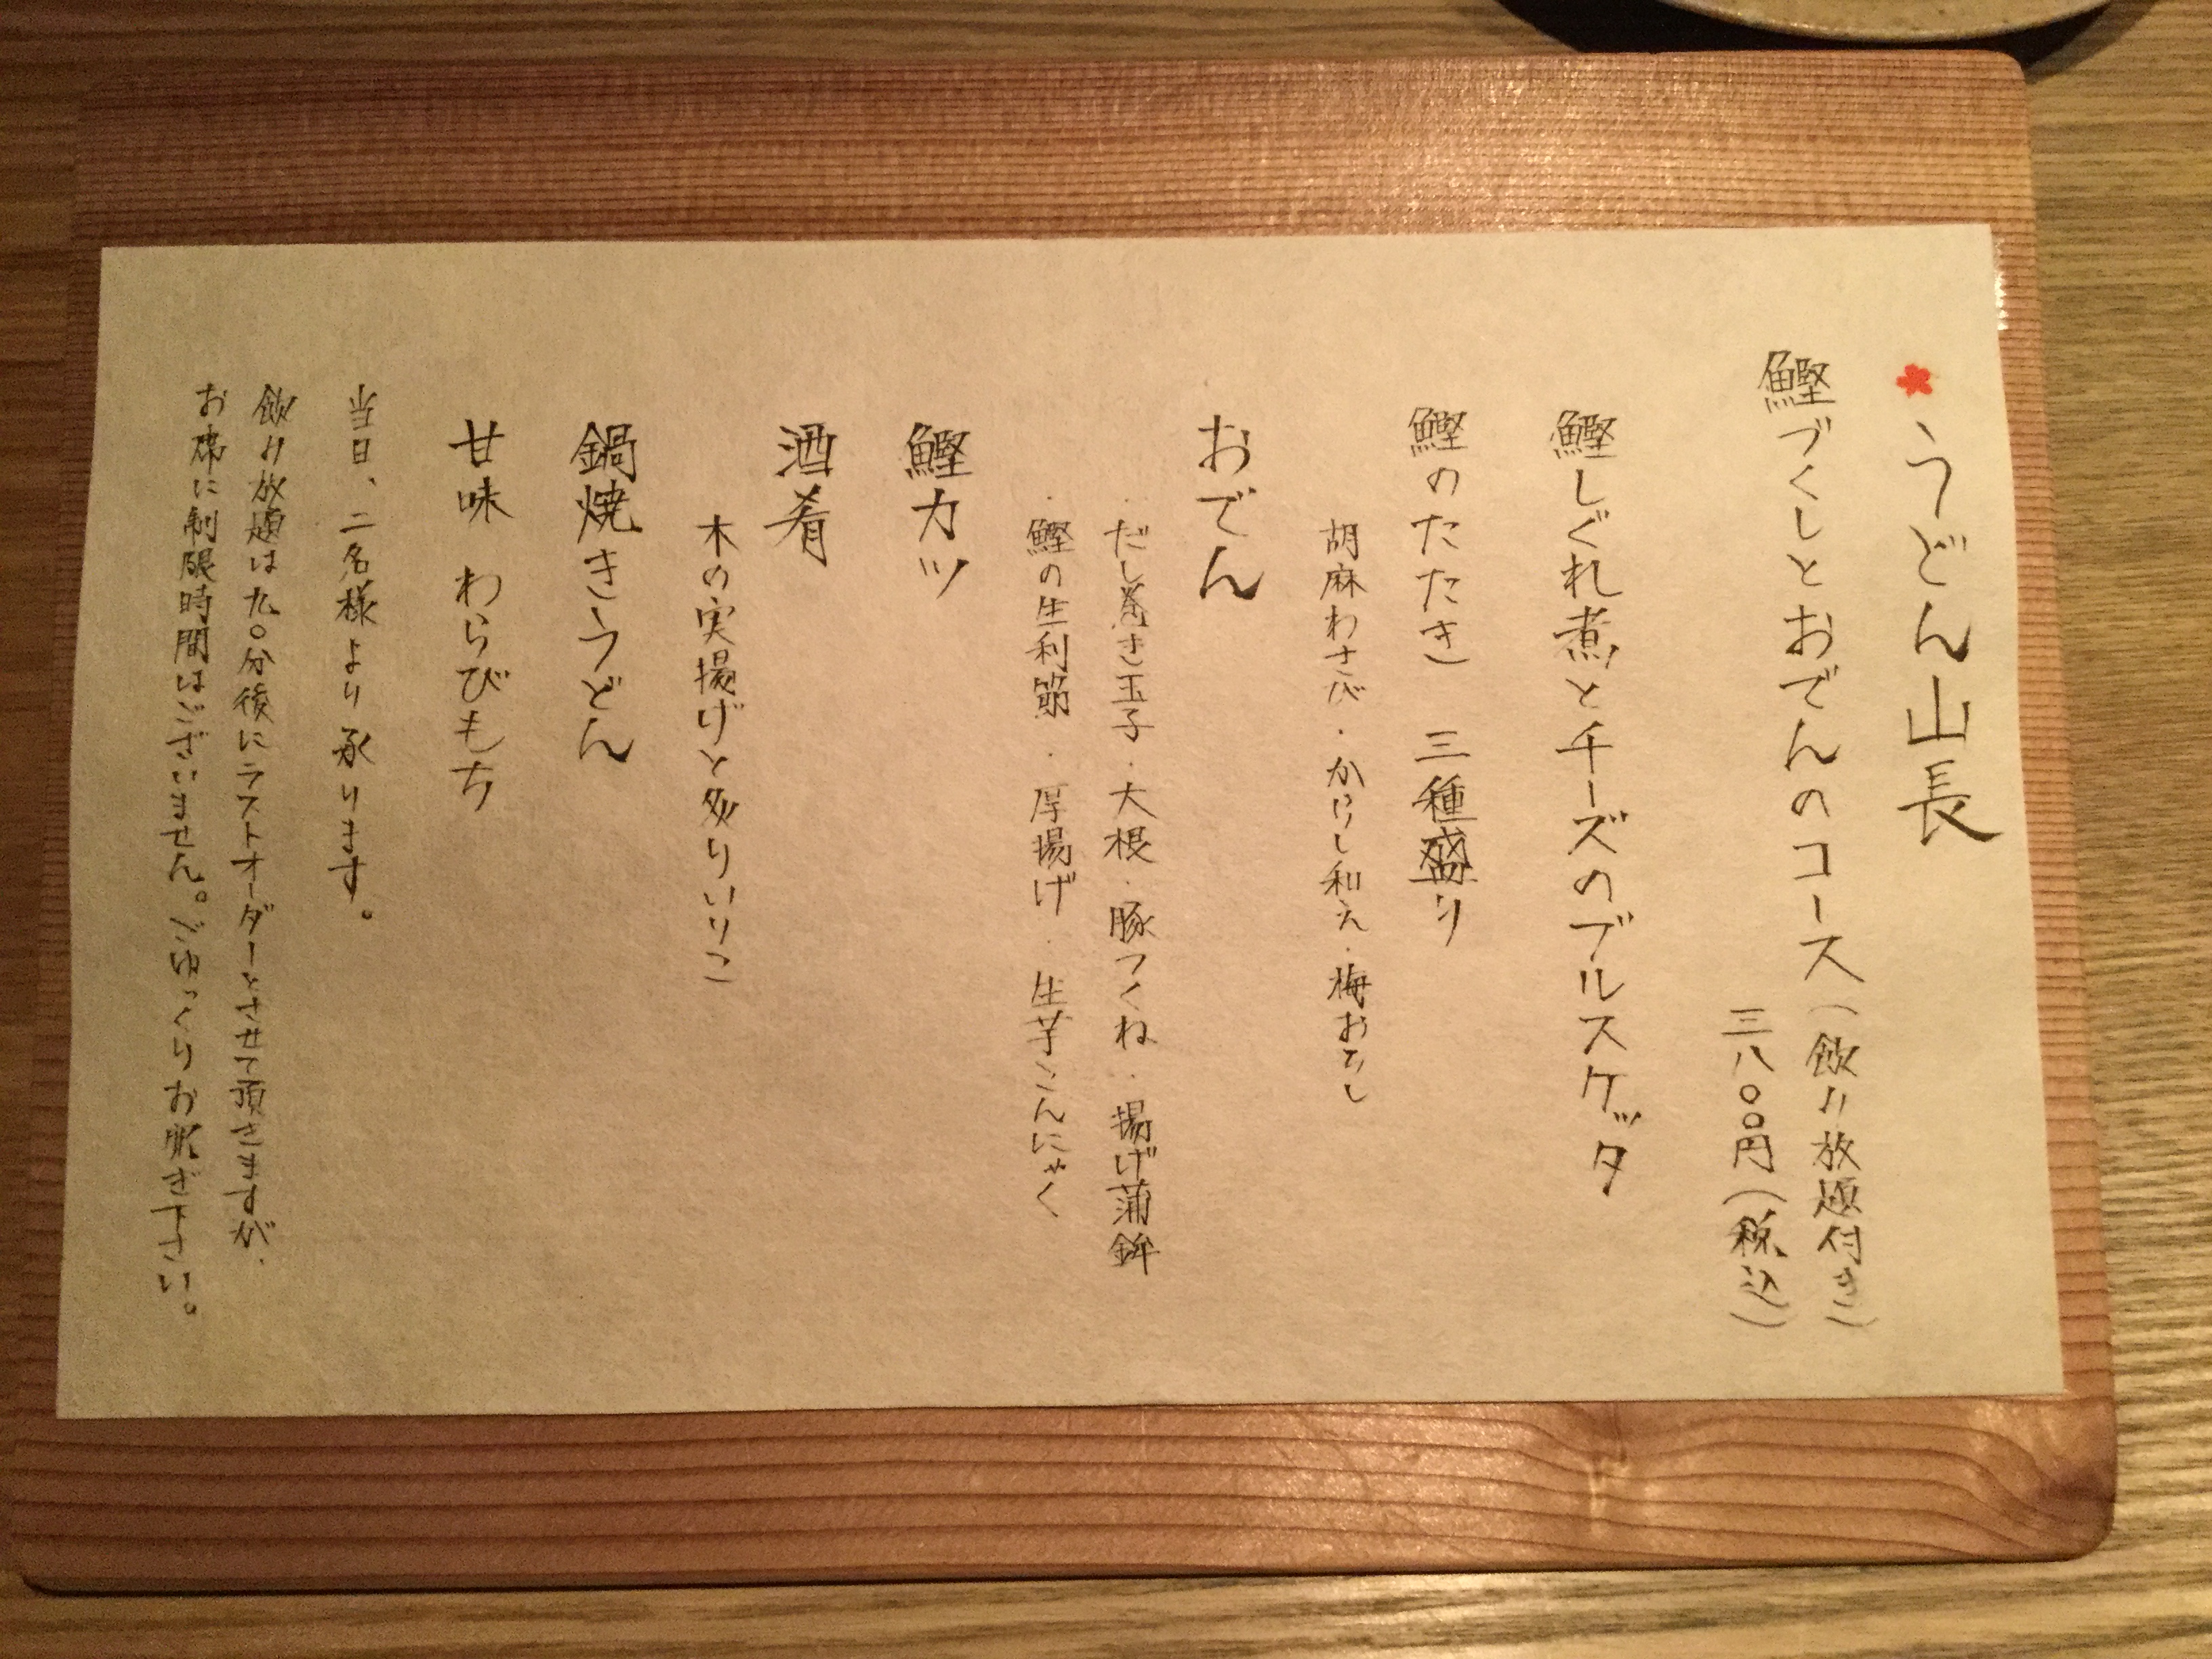 うどん山長
鰹づくしとおでんのコース(飲み放題付き)
三八〇〇円(税込)
鰹しぐれ煮とチーズのブルスケッタ
鰹のたたき 三種盛り
胡麻わさび・からし和え・梅おろし
おでん
・だし巻き玉子・大根・豚つくね・揚げ蒲鉾
・鰹の生利節・厚揚げ・生芋こんにゃく
鰹カツ
酒肴
木の実揚げと炙りいりこ
鍋焼きうどん
甘味 わらびもち
当日、二名様より承ります。
飲み放題は九〇分後にラストオーダーとさせて頂きますが、
お席に制限時間はございません。ごゆっくりお寛ぎ下さい。